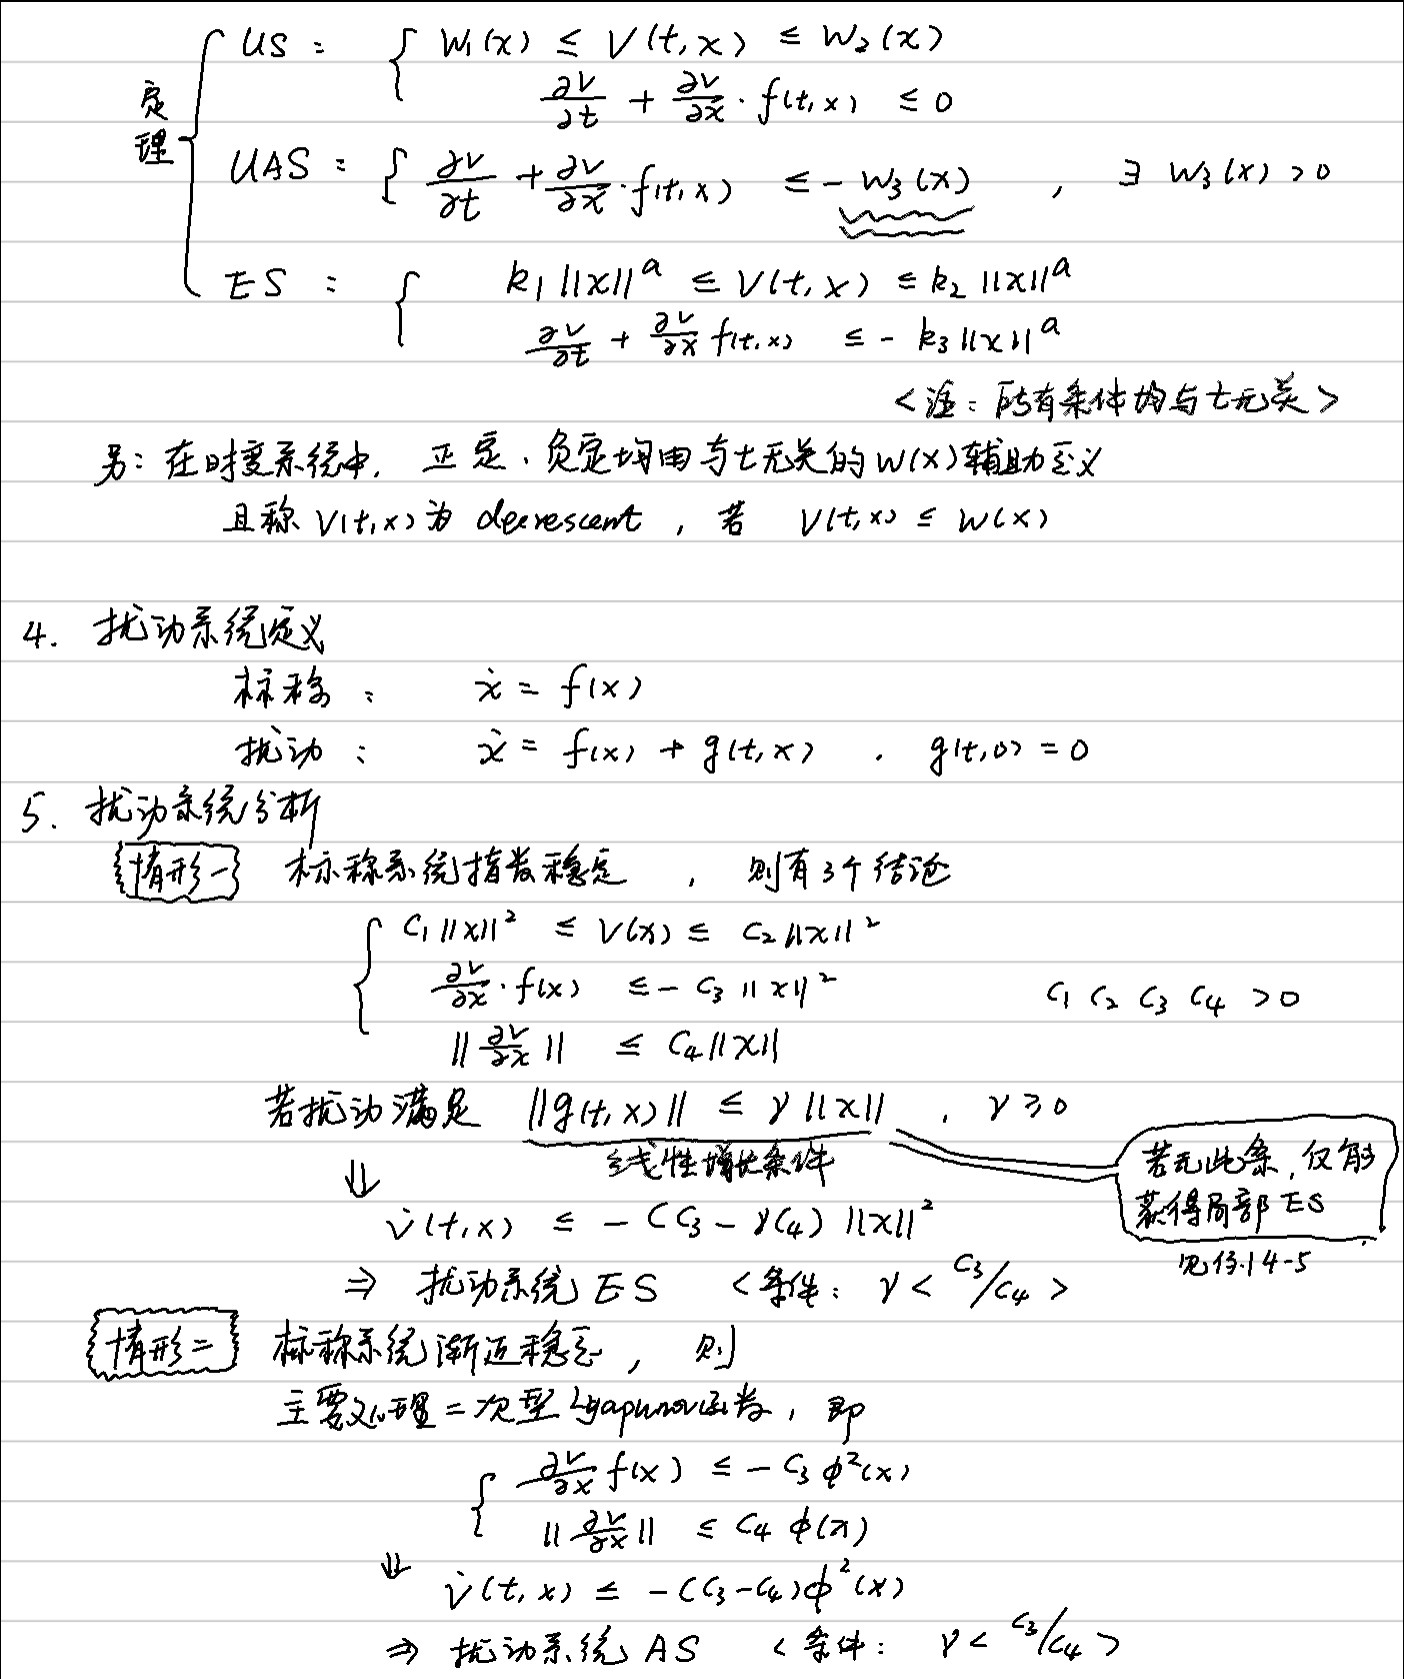 定理
US : W₁(x) ≤ V(t,x) ≤ W₂(x)
∂V/∂t + ∂V/∂x · f(t,x) ≤ 0
UAS : ∂V/∂t + ∂V/∂x · f(t,x) ≤ - W₃(x) , ∃ W₃(x) > 0
ES : k₁||x||ᵃ ≤ V(t,x) ≤ k₂||x||ᵃ
∂V/∂t + ∂V/∂x f(t,x) ≤ - k₃||x||ᵃ
<注:所有条件均与t无关>
另:在时变系统中, 正定、负定均由与t无关的W(x)辅助定义
且称 V(t,x) 为 decrescent , 若 V(t,x) ≤ W(x)
4. 扰动系统定义
标称 : ẋ = f(x)
扰动 : ẋ = f(x) + g(t,x) . g(t,0) = 0
5. 扰动系统分析
情形一 标称系统指数稳定 , 则有3个结论
C₁||x||² ≤ V(x) ≤ C₂||x||²
∂V/∂x · f(x) ≤ - C₃||x||²
C₁ C₂ C₃ C₄ > 0
||∂V/∂x|| ≤ C₄||x||
若扰动满足 ||g(t,x)|| ≤ γ||x|| , γ ≥ 0
线性增长条件
若无此条,仅能
获得局部 ES
见例14-5
⇓
V̇(t,x) ≤ - (C₃ - γC₄) ||x||²
⇒ 扰动系统 ES <条件: γ < C₃/C₄ >
情形二 标称系统渐近稳定 , 则
主要处理二次型Lyapunov函数, 即
∂V/∂x f(x) ≤ - C₃ φ²(x)
||∂V/∂x|| ≤ C₄ φ(x)
⇓
V̇(t,x) ≤ -(C₃-C₄)φ²(x)
⇒ 扰动系统 AS <条件: γ < C₃/C₄ >